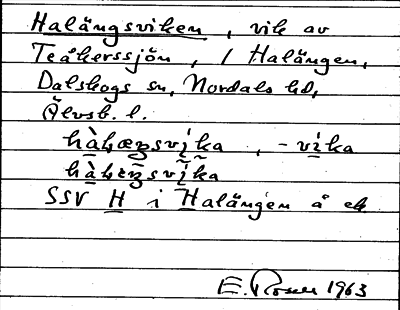 Halängsviken, vik av
Teåkerssjön, / Halängen,
Dalskogs sn, Nordals hd,
Älvsb. l.
hàḷæŋsvi̱ka, -vi̱ka
hàḷɛŋsvi̱ka
SSV H i Halängen å ek
E. Rosell 1963